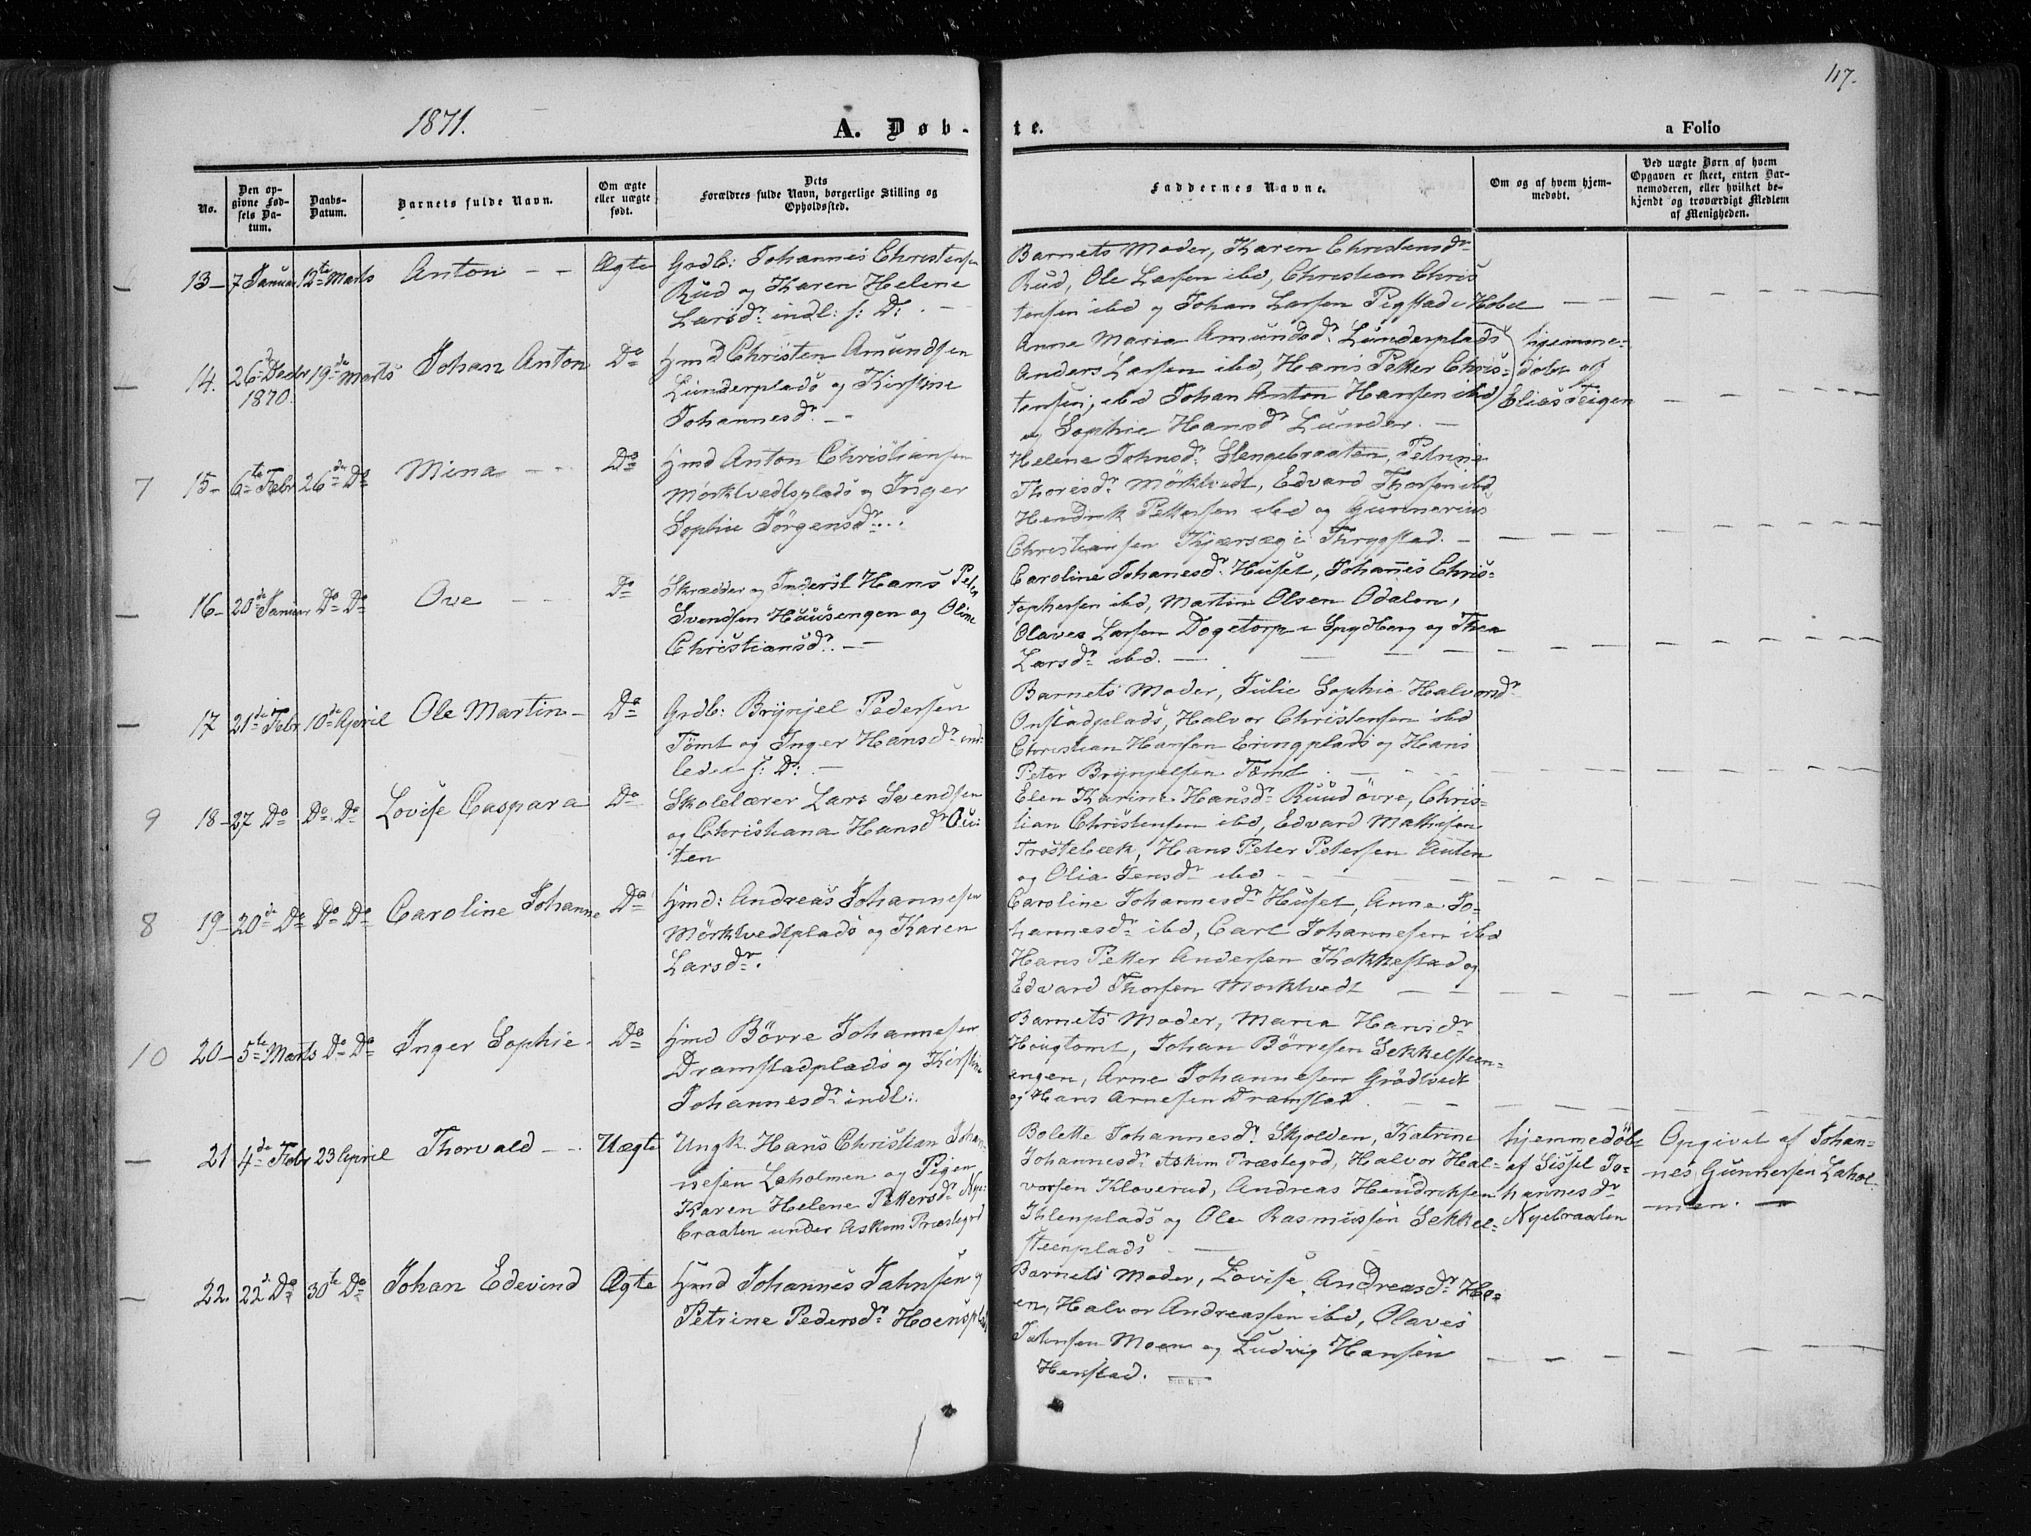 117.
1871.
A. Døb-
te.
a Folio
No.
Den op-
givne Fød-
sels Da-
tum.
Daabs-
Datum.
Barnets fulde Navn.
Om ægte
eller uægte
født.
Dets
Forældres fulde Navn, borgerlige Stilling og
Opholdssted.
Faddernes Navne.
Om og af hvem hjem-
medøbt.
Ved uægte Børn af hvem
Opgaven er skeet, enten Bar-
nemoderen, eller hvilket be-
kjendt og troværdigt Medlem
af Menigheden.
13- 7 Januar 12te Marts Anton - - Ægte
Grdb: Johannes Christensen
Rud og Karen Helene
Larsdr. indl: f: D: -
Barnets Moder, Karen Christensdr.
Rud, Ole Larsen ibd, Christian Chris
tensen ibd og Johan Larsen Pigstad i Hobøl
14. 26de Decbr 1870. 19de Marts Johan Anton Do
Hmd Christen Amundsen
Lunderplads og Kirstine
Johannesdr. -
Anne Maria Amundsdr. Lunderplads
Anders Larsen ibd, Hans Petter Chris-
tensen, ibd Johan Anton Hansen ibd
og Sophie Hansdr. Lunder. -
hjemme-
døbt af
Elias Teigen
7 15- 6te Febr 26de Do Mina - - Do
Hmd Anton Christiansen
Mörktvedtsplads og Inger
Sophie Jørgensdr. . .
Helene Johnsdr. Slengebraaten, Petrine
Thoresdr. Mörktvedt, Edvard Thorsen ibd
Hendrik Pettersen ibd og Gunnerius
Christiansen Kjærsæg i Thrygstad. -
16- 20de Januar Do Do Ove - - Do
Skrædder og Inderst Hans Peter
Svendsen Huusengen og Oline
Christiansdr. -
Caroline Johanesdr. Huset, Johannes Chris-
tophersen ibd, Martin Olsen Odalen,
Olaves Larsen Dogetorp i Spydberg og Thea
Larsdr. ibd. -
17 21de Febr 10de April Ole Martin - Do
Grdb: Brynjel Pedersen
Tömt og Inger Hansdr. ind-
leder f: D: -
Barnets Moder, Julie Sophie Halvorsdr.
Onstadplads, Halvor Christensen ibd
Christian Hansen Eringplads og Hans
Peter Brynjelsen Tömt
9 18- 27 Do Do Do Lovise Caspara Do
Skolelærer Lars Svendsen
og Christiana Hansdr. Qui
ten
Elen Karine Hansdr. Ruud övre, Chris-
tian Christensen ibd, Edvard Mathisen
Trøstebæk, Hans Peter Petersen
og Olia Jensdr. ibd - -
8 19- 20de Do Do Do Caroline Johanne Do
Hmd: Andreas Johannesen
Mörktvedtplads og Karen
Larsdr.
Caroline Johannesdr. Huset, Anne Jo-
hannesdr. ibd, Carl Johannesen ibd
Hans Petter Andersen Kokkestad og
Edvard Thorsen Morktvedt
10 20- 5te Marts Do Do Inger Sophie - Do
Hmd Börre Johannesen
Dramstadplads og Kirstine
Johannesdr. indl:
Barnets Moder, Maria Hansdr.
Hougtomt, Johan Börresen Sekkelsteen-
engen, Arne Johannesen Grødtvedt
og Hans Arnesen Dramstad
21 4de Febr 23 April Thorvald - - Uægte
Ungk. Hans Christian Johan-
nesen Laholmen og Pigen
Karen Helene Pettersdr. Nye-
braaten under Askim Præstegrd
Bolette Johannesdr. Skjolden, Katrine
Johannesdr. Askim Præstegrd, Halvor Hal-
vorsen Kloverud, Andreas Hendriksen
Ihlenplads og Ole Rasmussen Sekkel-
steenplads -
hjemmedöbt
af Sissel Jo-
hannesdr.
Nyebraaten
Opgivet af Johan-
nes Gunnersen Lahol-
men. -
22. 22de Do 30te Do Johan Edevind Ægte
Hmd Johannes Jahnsen og
Petrine Pedersdr. Hoensplads
Barnets Moder, Lovise Andreasdr. Ho-
en, Halvor Andreassen ibd, Olaves
Jahnsen Moen og Ludvig Hansen
Henstad.